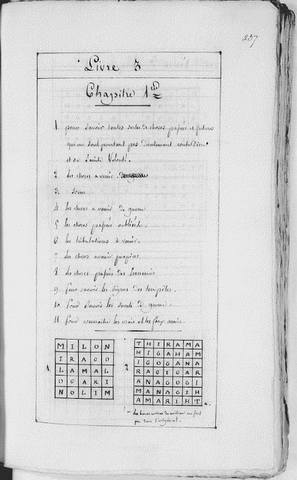 237
Livre 3
Chapitre 1er
1 pour savoir toutes sortes de choses passées et futures
qui ne sont pourtant pas directement contre Dieu
et sa Sainte Volonté.
2. les choses a venir
3. idem
4 les choses a venir de guerre
5 les choses passées oubliées.
6 les tribulations a venir.
7. les choses a venir propices.
8. les choses passées des Ennemis
9. pour savoir les signes des tempêtes.
10 pour savoir les secrets de guerre.
11 pour connaitre les vrais et les faux amis.
1
MILON
IRAGO
LAMAL
OGARI
NOLIM
2
THIRAMA
HIGANAM
IGOGANA
RAGIGAR
ANAGOGI
MANAGIH
AMARIHT